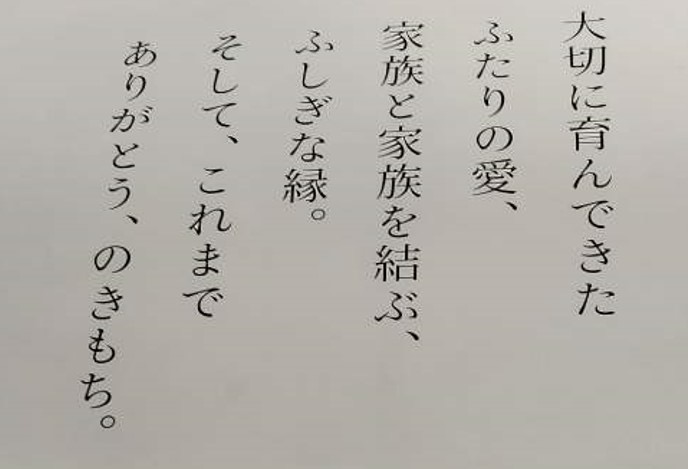 大切に育んできた
ふたりの愛、
家族と家族を結ぶ、
ふしぎな縁。
そして、これまで
ありがとう、のきもち。